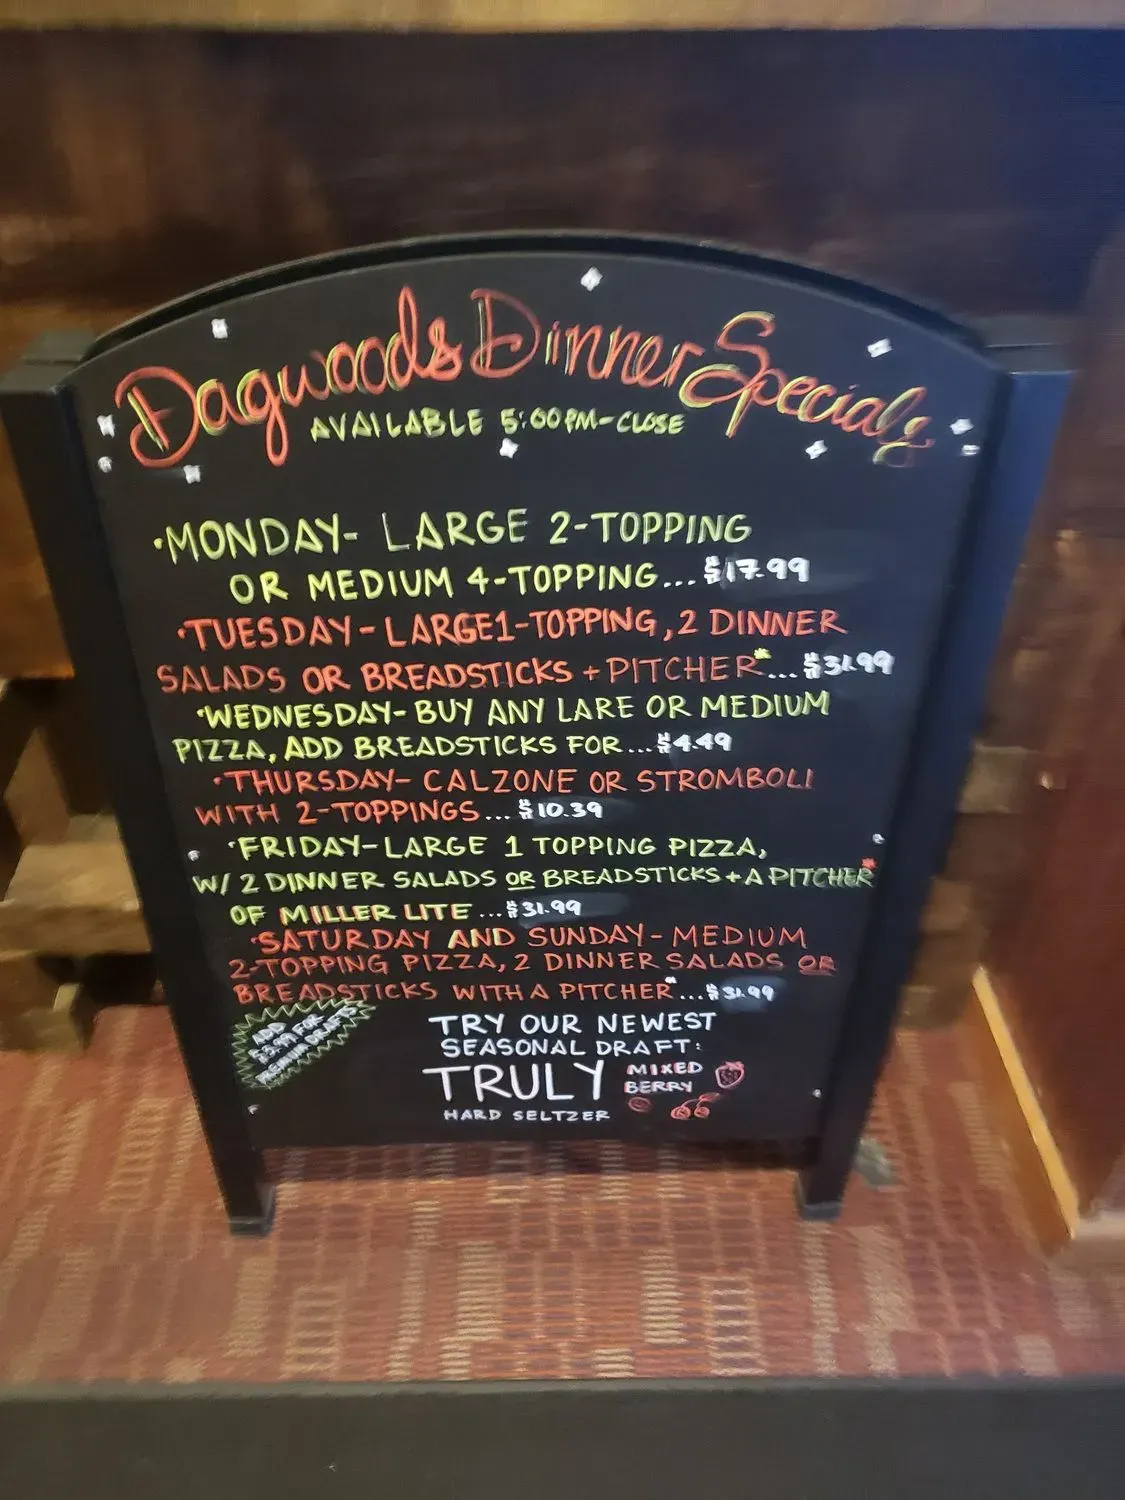 Dagwoods Dinner Specials
AVAILABLE 5:00PM-CLOSE
•MONDAY- LARGE 2-TOPPING
OR MEDIUM 4-TOPPING...$17.99
•TUESDAY-LARGE1-TOPPING, 2 DINNER
SALADS OR BREADSTICKS + PITCHER*...$31.99
•WEDNESDAY-BUY ANY LARE OR MEDIUM
PIZZA, ADD BREADSTICKS FOR...$4.49
•THURSDAY- CALZONE OR STROMBOLI
WITH 2-TOPPINGS...$10.39
•FRIDAY-LARGE 1 TOPPING PIZZA,
W/ 2 DINNER SALADS OR BREADSTICKS + A PITCHER*
OF MILLER LITE...$31.99
•SATURDAY AND SUNDAY-MEDIUM
2-TOPPING PIZZA, 2 DINNER SALADS OR
BREADSTICKS WITH A PITCHER*...$31.99
ADD
$3.99 FOR
PREMIUM DRAFTS
TRY OUR NEWEST
SEASONAL DRAFT:
TRULY MIXED BERRY
HARD SELTZER